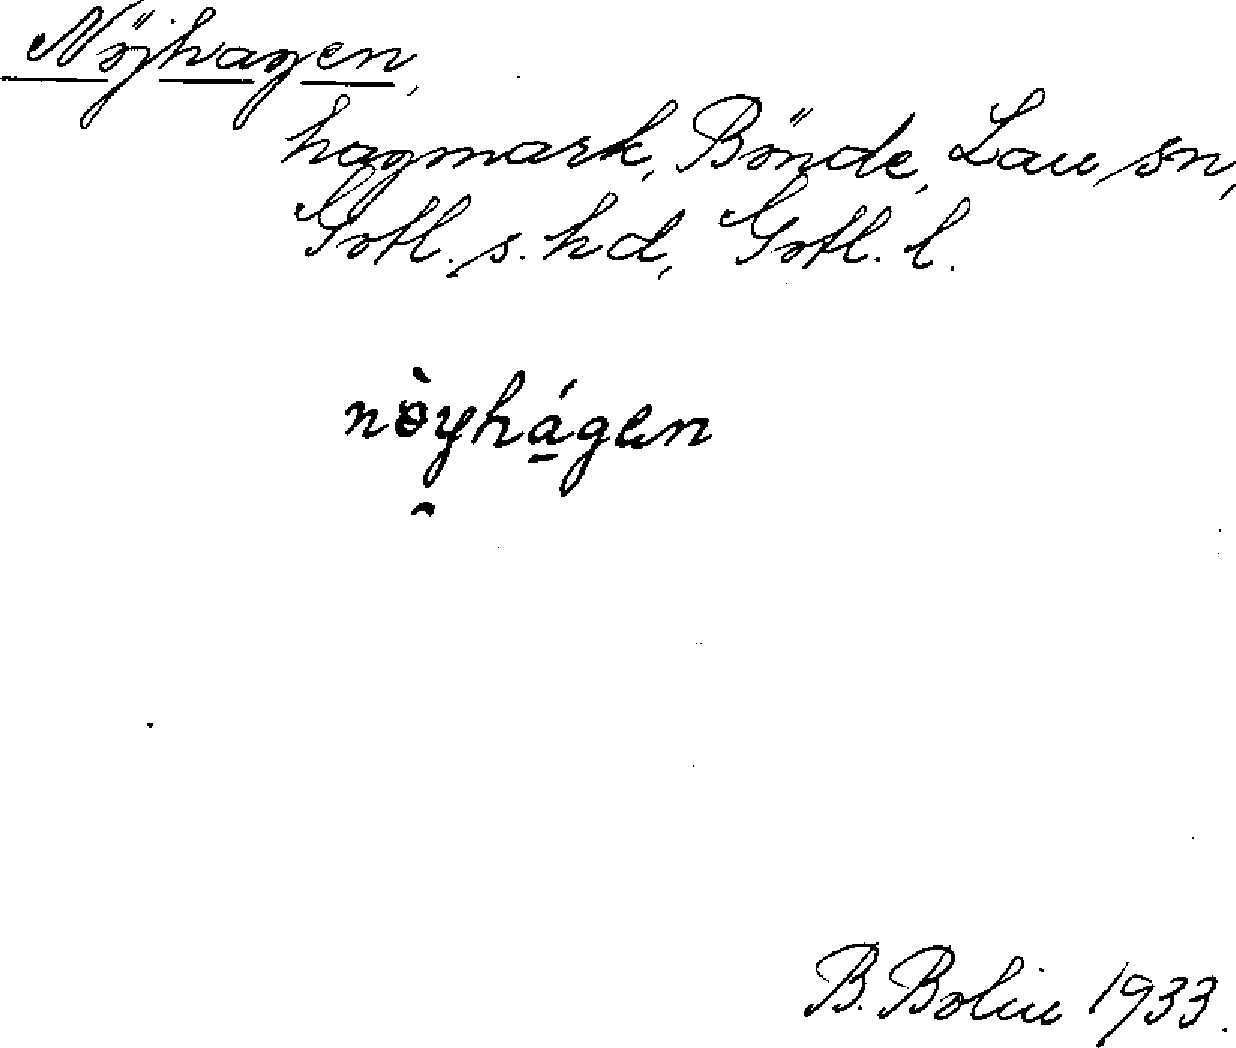 Nöjhagen,
hagmark, Bönde, Lau sn,
Gotl. s. hd, Gotl. l.
nòyhágen
B. Bolin 1933.